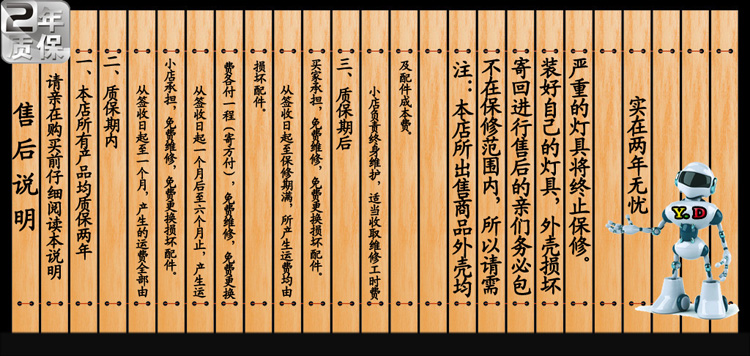 2年
质保
售后说明
请亲在购买前仔细阅读本说明
一、本店所有产品均质保两年
二、质保期内
从签收日起至一个月，产生的运费全部由
小店承担，免费维修，免费更换损坏配件。
从签收日起一个月后至六个月止，产生运
费各付一程（寄方付），免费维修，免费更换
损坏配件。
从签收日起至保修期满，所产生运费均由
买家承担，免费维修，免费更换损坏配件。
三、质保期后
小店负责终身维护，适当收取维修工时费
及配件成本费。
注：本店所出售商品外壳均
不在保修范围内，所以请需
寄回进行售后的亲们务必包
装好自己的灯具，外壳损坏
严重的灯具将终止保修。
实在两年无忧
Y.D